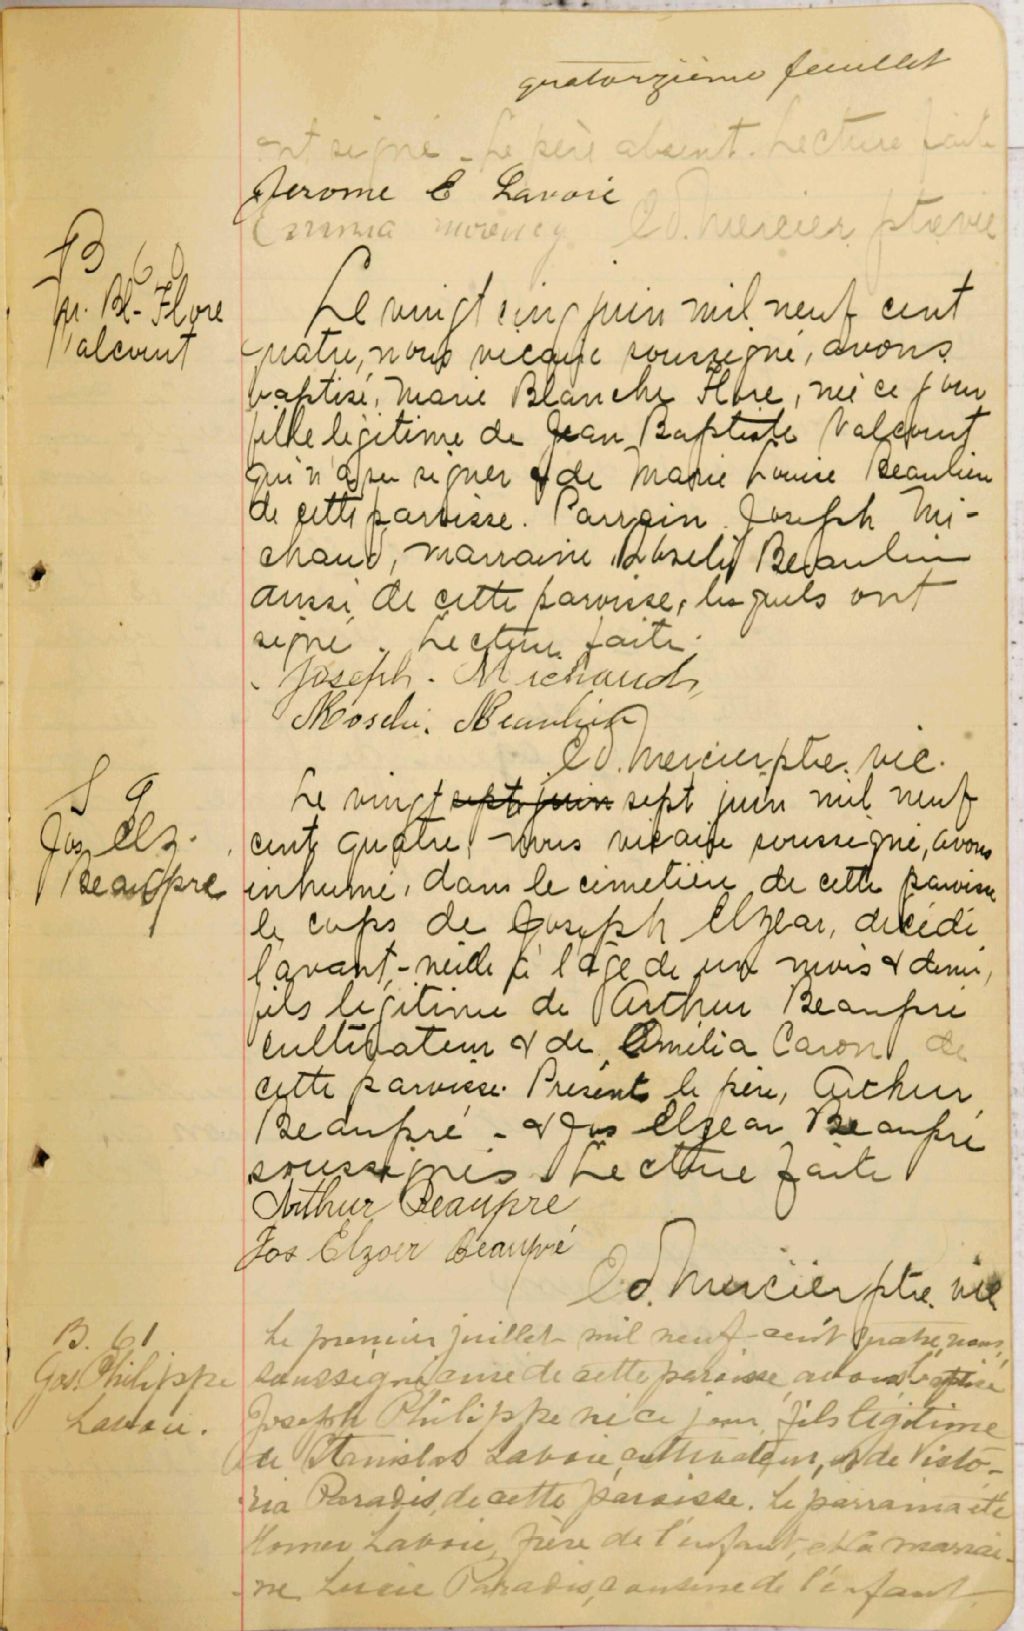 quatorzième feuillet
ont signé - Le père absent. Lecture faite
Jerome E Lavoie
Emma morency Ed. Mercier ptre vic
B 60
M. Bl- Flore
Valcourt
Le vingt cinq juin mil neuf cent
quatre, nous vicaire soussigné, avons
baptisé, Marie Blanche Flore, née ce jour
fille légitime de Jean Baptiste Valcourt
qui n'a pu signer & de Marie Louise Beaulieu
de cette paroisse. Parrain Joseph Mi-
chaud, marraine Beaulieu
aussi de cette paroisse, lesquels ont
signé. Lecture faite.
Joseph. Michaud
Beaulieu
Ed. Mercier ptre. vic.
S 9
Jos Elz.
Beaupre
Le vingt sept juin sept juin mil neuf
cent quatre, nous vicaire soussigné, avons
inhumé, dans le cimetière de cette paroisse
le corps de Joseph Elzear, décédé
l'avant-veille à l'âge de un mois & demi,
fils légitime de Arthur Beaupré
cultivateur & de Amélia Caron de
cette paroisse. Présents le père, Arthur
Beaupré - & Jos Elzear Beaupré
soussignés Lecture faite
Arthur Beaupre
Jos Elzoer Beaupré
Ed. Mercier ptre. vic
B. 61
Jos. Philippe
Lavoie.
Le premier juillet mil neuf-cent quatre, nous,
soussigné curé de cette paroisse avons baptisé
Joseph Philippe né ce jour, fils légitime
de Stanislas Lavoie, cultivateur, & de Victo-
ria Paradis, de cette paroisse. Le parrain a été
Homer Lavoie, frère de l'enfant, et la marrai-
ne Lucie Paradis, cousine de l'enfant